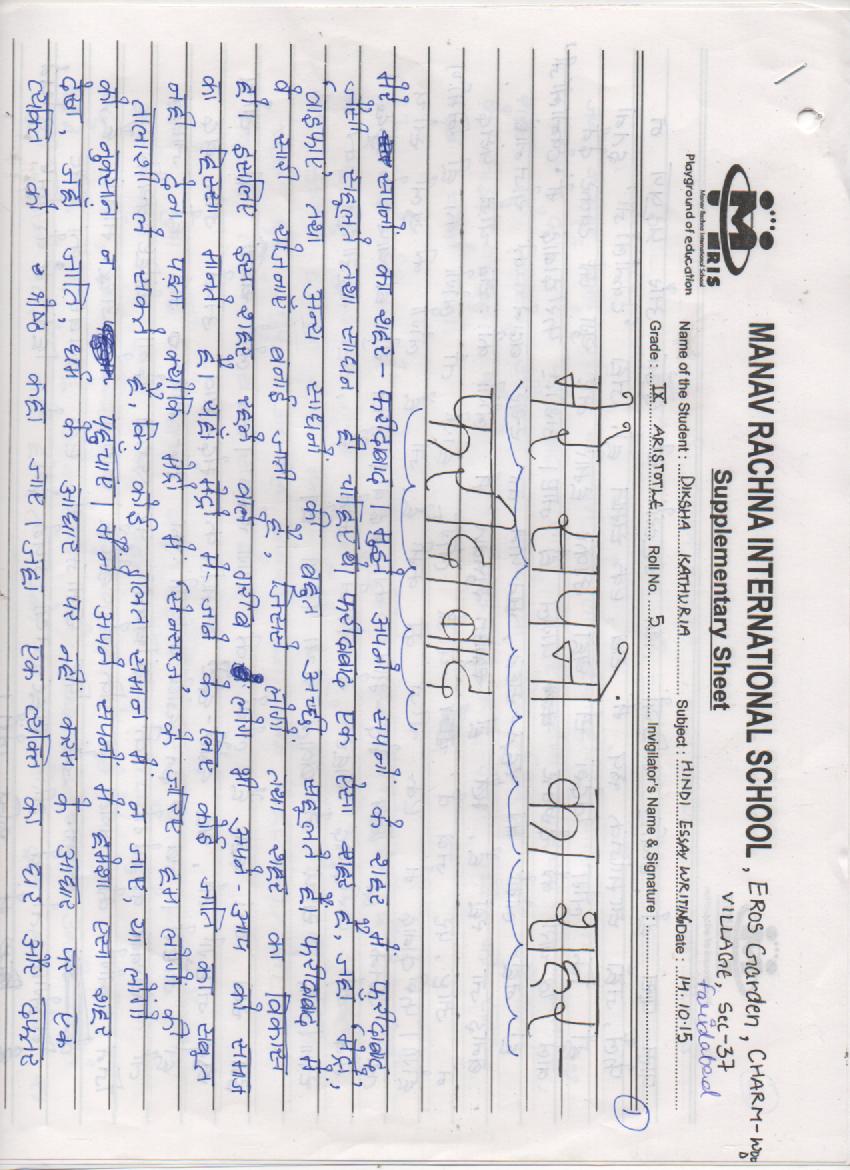 MANAV RACHNA INTERNATIONAL SCHOOL, EROS Garden, CHARM-WOOD
VILLAGE, Sec-37
Faridabad
Supplementary Sheet
MRIS
Manav Rachna International School
Playground of education
Name of the Student : DIKSHA KATHURIA Subject : HINDI ESSAY WRITING Date : 14.10.15
Grade : IX ARISTOTLE Roll No. 5 Invigilator's Name & Signature :
1
मेरे सपनों का शहर -
फरीदाबाद
मेरे सपनों का शहर - फरीदाबाद। मुझे अपने सपनों के शहर में फरीदाबाद
जैसी सहूलते तथा साधन ही चाहिए थे फरीदाबाद एक ऐसा शहर है, जहाँ मेट्रो,
वाइफाए, तथा अन्य साधनों की बहुत अच्छी सहूलते है। फरीदाबाद में
वे सारी योजनाएँ बनाई जाती है, जिससे लोगों तथा शहर का विकास
हो। इसलिए इस शहर रहने वाले गरीब लोग भी अपने-आप को समाज
का हिस्सा मानते है। यहाँ मेट्रो में जाने के लिए कोई जाति का सबूत
नही देना पड़ता क्योंकि मेट्रो में 'सेनसरज' के जरिए हम लोगों की
तालाशी ले सकते है, कि कोई गलत सामान में न जाए, या लोगों
को नुकसान न पहुंचाए। मैंने अपने सपनों में हमेशा ऐसा शहर
देखा, जहाँ जाति, धर्म के आधार पर नहीं करम के आधार पर एक
व्यक्ति को श्रेष्ठ कहा जाए। जहा एक व्यक्ति का घर और दफ्तर